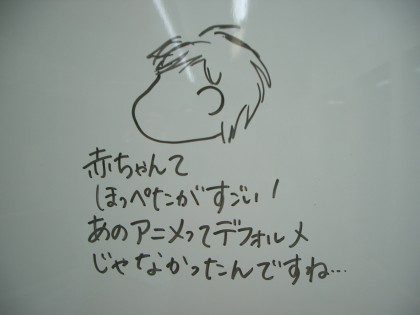 赤ちゃんて
ほっぺたがすごい!
あのアニメってデフォルメ
じゃなかったんですね…